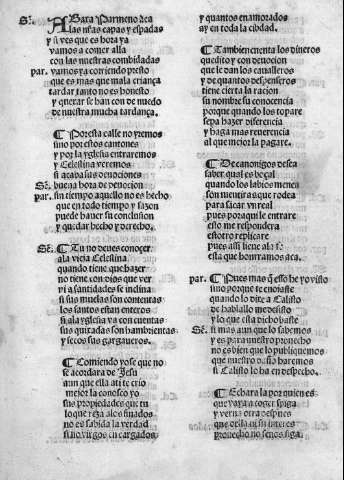 Se. A Sara Parmeno aca
las nr̃as capas y espadas
y si ves que es hora ya
vamos a comer alla
con las nuestras combidadas
par. vamos ya corriendo presto
que es mas que mala criança
tardar tanto no es honesto
y querar se han con denuedo
de nuestra mucha tardança.
¶ Por esta calle no yremos
sino por estos cantones
y por la yglesia entraremos
y Celestina veremos
si acaba sus deuociones
Se. buena hora de deuocion
par. sin tiempo aquello no es hecho
que en todo tiempo y sazon
puede hauer su conclusion
y quedar hecho y derecho.
Se. ¶ Tu no deues conoçer
a la vieja Celestina
quando tiene que hazer
no tiene con dios que ver
ni a santidades se inclina
si sus muelas son contentas
los santos estan enteros
si a la yglesia va con cuentas
sus quixadas son hambrientas
y secos sus gargueros.
¶ Comiendo yo se que no
se acordara de Jesu
aun que ella a ti te crio
mejor la conosco yo
sus propiedades que tu
lo que reza a los finados
no es sabida la verdad
si no virgos encargados
y quantos enamorados
ay en toda la cibdad.
¶ Tambien cuenta los dineros
que dito y con deuocion
que le dan los caualleros
y de quantos despenseros
tiene cierta la racion
su nombre su conocencia
porque quando los topare
sepa hazer diferencia
y haga mas reuerencia
al que mejor la pagare.
¶ De canonigos desea
saber qual es boçal
quando los labios menea
son mentiras que rodea
para sacar vn real
pues por aqui le entrare
esto me respondera
estotro replicare
pues assi tiene al a fe
esta que honrramos aca.
par. ¶ Pues mas q̃ esso he yo visto
sino porque te enojaste
quando lo dixe a Calisto
de hablallo me desisto
y lo que esta dicho baste
Se. si mas aun que lo sabemos
y es para nuestro prouecho
no es bien que lo publiquemos
que nuestro daño haremos
si Calisto lo ha en despecho.
¶ Echara la por quien es
que vaya a coger spiga
y verna otra despues
que della sin interes
prouecho no se nos siga.